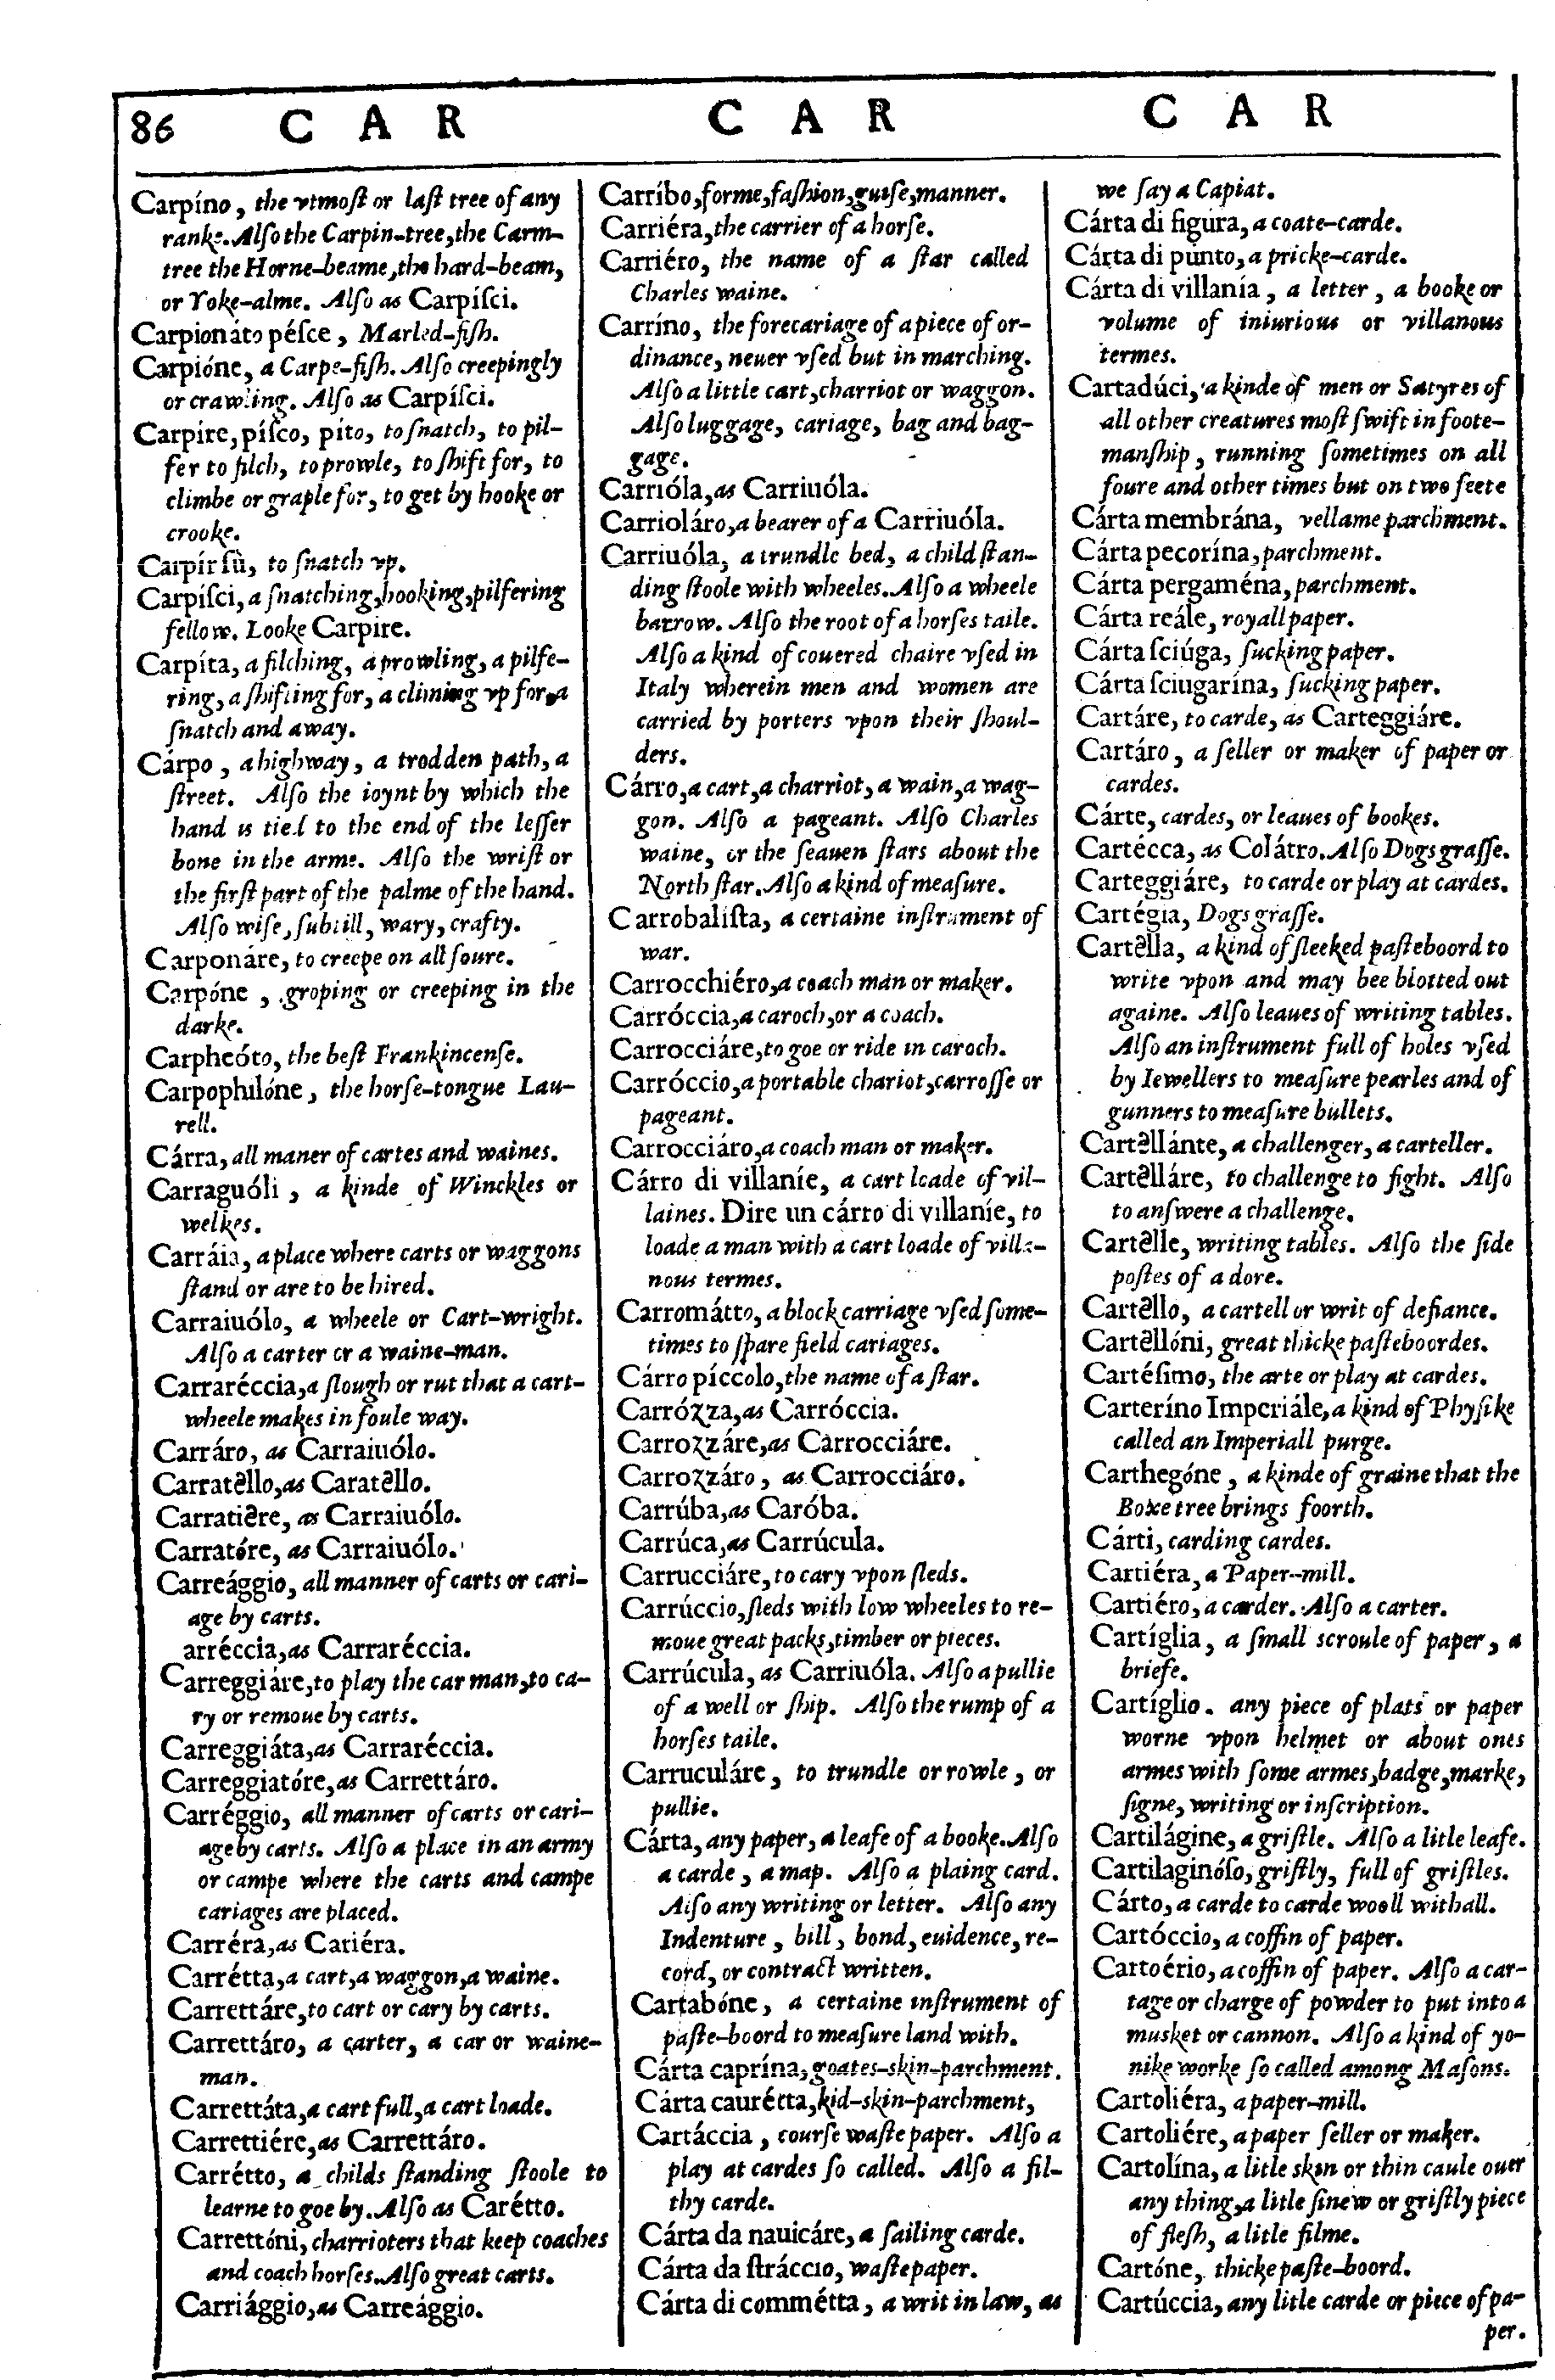 86 C A R C A R C A R
Carpíno, the vtmoſt or laſt tree of any
ranke. Alſo the Carpin-tree, the Carm-
tree the Horne-beame, the hard-beam,
or Yoke-alme. Alſo as Carpíſci.
Carpionáto péſce, Marled-fiſh.
Carpióne, a Carpe-fiſh. Alſo creepingly
or crawling. Alſo as Carpíſci.
Carpíre, píſco, píto, to ſnatch, to pil-
fer to filch, to prowle, to ſhift for, to
climbe or graple for, to get by hooke or
crooke.
Carpír ſù, to ſnatch vp.
Carpíſci, a ſnatching, hooking, pilfering
fellow. Looke Carpire.
Carpíta, a filching, a prowling, a pilfe-
ring, a ſhifting for, a climing vp for, a
ſnatch and away.
Cárpo, a highway, a trodden path, a
ſtreet. Alſo the ioynt by which the
hand is tied to the end of the leſſer
bone in the arme. Alſo the wriſt or
the firſt part of the palme of the hand.
Alſo wiſe, ſubtill, wary, crafty.
Carponáre, to creepe on all foure.
Carpóne, groping or creeping in the
darke.
Carpheóto, the beſt Frankincenſe.
Carpophilóne, the horſe-tongue Lau-
rell.
Cárra, all maner of cartes and waines.
Carraguóli, a kinde of Winckles or
welkes.
Carráia, a place where carts or waggons
ſtand or are to be hired.
Carraiuólo, a wheele or Cart-wright.
Alſo a carter or a waine-man.
Carraréccia, a ſlough or rut that a cart-
wheele makes in foule way.
Carráro, as Carraiuólo.
Carratəllo, as Caratəllo.
Carratiəre, as Carraiuólo.
Carratóre, as Carraiuólo.
Carreággio, all manner of carts or cari-
age by carts.
arréccia, as Carraréccia.
Carreggiáre, to play the car man, to ca-
ry or remoue by carts.
Carreggiáta, as Carraréccia.
Carreggiatóre, as Carrettáro.
Carréggio, all manner of carts or cari-
age by carts. Alſo a place in an army
or campe where the carts and campe
cariages are placed.
Carréra, as Cariéra.
Carrétta, a cart, a waggon, a waine.
Carrettáre, to cart or cary by carts.
Carrettáro, a carter, a car or waine-
man.
Carrettáta, a cart full, a cart loade.
Carrettiére, as Carrettáro.
Carrétto, a childs ſtanding ſtoole to
learne to goe by. Alſo as Carétto.
Carrettóni, charrioters that keep coaches
and coach horſes. Alſo great carts.
Carriággio, as Carreággio.
Carríbo, forme, faſhion, guiſe, manner.
Carriéra, the carrier of a horſe.
Carriéro, the name of a ſtar called
Charles waine.
Carríno, the forecariage of a piece of or-
dinance, neuer vſed but in marching.
Alſo a little cart, charriot or waggon.
Alſo luggage, cariage, bag and bag-
gage.
Carrióla, as Carriuóla.
Carrioláro, a bearer of a Carriuóla.
Carriuóla, a trundle bed, a child ſtan-
ding ſtoole with wheeles. Alſo a wheele
barrow. Alſo the root of a horſes taile.
Alſo a kind of couered chaire vſed in
Italy wherein men and women are
carried by porters vpon their ſhoul-
ders.
Cárro, a cart, a charriot, a wain, a wag-
gon. Alſo a pageant. Alſo Charles
waine, or the ſeauen ſtars about the
North ſtar. Alſo a kind of meaſure.
Carrobaliſta, a certaine inſtrument of
war.
Carrocchiéro, a coach man or maker.
Carróccia, a caroch, or a coach.
Carrocciáre, to goe or ride in caroch.
Carróccio, a portable chariot, carroſſe or
pageant.
Carrocciáro, a coach man or maker.
Cárro di villaníe, a cart loade of vil-
laines. Dire un cárro di villaníe, to
loade a man with a cart loade of villa-
nous termes.
Carromátto, a block carriage vſed ſome-
times to ſpare field cariages.
Cárro píccolo, the name of a ſtar.
Carróʒza, as Carróccia.
Carroʒzáre, as Carrocciáre.
Carroʒzáro, as Carrocciáro.
Carrúba, as Caróba.
Carrúca, as Carrúcula.
Carrucciáre, to cary vpon ſleds.
Carrúccio, ſleds with low wheeles to re-
moue great packs, timber or pieces.
Carrúcula, as Carriuóla. Alſo a pullie
of a well or ſhip. Alſo the rump of a
horſes taile.
Carruculáre, to trundle or rowle, or
pullie.
Cárta, any paper, a leafe of a booke. Alſo
a carde, a map. Alſo a plaing card.
Alſo any writing or letter. Alſo any
Indenture, bill, bond, euidence, re-
cord, or contract written.
Cartabóne, a certaine inſtrument of
paſte-boord to meaſure land with.
Cárta caprína, goates-skin-parchment.
Cárta caurétta, kid-skin-parchment,
Cartáccia, courſe waſte paper. Alſo a
play at cardes ſo called. Alſo a fil-
thy carde.
Cárta da nauicáre, a ſailing carde.
Cárta da ſtráccio, waſte paper.
Cárta di commétta, a writ in law, as
we ſay a Capiat.
Cárta di figúra, a coate-carde.
Cárta di púnto, a pricke-carde.
Cárta di villanía, a letter, a booke or
volume of iniurious or villanous
termes.
Cartadúci, a kinde of men or Satyres of
all other creatures moſt ſwift in foote-
manſhip, running ſometimes on all
foure and other times but on two feete
Cárta membrána, vellame parchment.
Cárta pecorína, parchment.
Cárta pergaména, parchment.
Cárta reále, royall paper.
Cárta ſciúga, ſucking paper.
Cárta ſciugarína, ſucking paper.
Cartáre, to carde, as Carteggiáre.
Cartáro, a ſeller or maker of paper or
cardes.
Cárte, cardes, or leaues of bookes.
Cartécca, as Colátro. Alſo Dogs graſſe.
Carteggiáre, to carde or play at cardes.
Cartégia, Dogs graſſe.
Cartəlla, a kind of ſleeked paſteboord to
write vpon and may bee blotted out
againe. Alſo leaues of writing tables.
Alſo an inſtrument full of holes vſed
by Iewellers to meaſure pearles and of
gunners to meaſure bullets.
Cartəllánte, a challenger, a carteller.
Cartəlláre, to challenge to fight. Alſo
to anſwere a challenge.
Cartəlle, writing tables. Alſo the ſide
poſtes of a dore.
Cartəllo, a cartell or writ of defiance.
Cartəllóni, great thicke paſteboordes.
Cartéſimo, the arte or play at cardes.
Carteríno Imperiále, a kind of Phyſike
called an Imperiall purge.
Carthegóne, a kinde of graine that the
Boxe tree brings foorth.
Cárti, carding cardes.
Cartiéra, a Paper-mill.
Cartiéro, a carder. Alſo a carter.
Cartíglia, a ſmall scroule of paper, a
briefe.
Cartíglio. any piece of plats or paper
worne vpon helmet or about ones
armes with ſome armes, badge, marke,
ſigne, writing or inſcription.
Cartilágine, a griſtle. Alſo a litle leafe.
Cartilaginóſo, griſtly, full of griſtles.
Cárto, a carde to carde wooll withall.
Cartóccio, a coffin of paper.
Cartoério, a coffin of paper. Alſo a car-
tage or charge of powder to put into a
musket or cannon. Alſo a kind of yo-
nike worke ſo called among Maſons.
Cartoliéra, a paper-mill.
Cartoliére, a paper ſeller or maker.
Cartolína, a litle skin or thin caule ouer
any thing, a litle ſinew or griſtly piece
of fleſh, a litle filme.
Cartóne, thicke paſte-boord.
Cartúccia, any litle carde or piece of pa-
per.